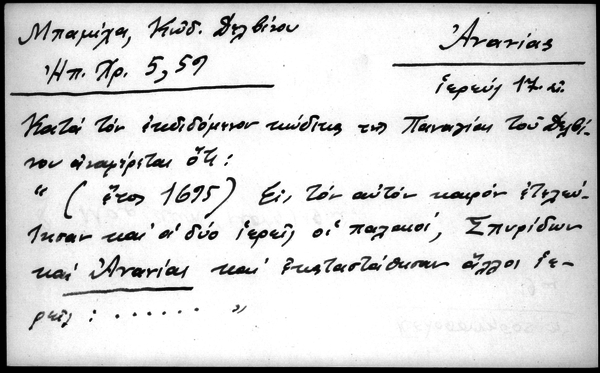 Μπαμίχα, Κώδ. Δελβίνου
Ἠπ. Χρ. 5, 59
Ἀνανίας
ἱερεύς 17. αἰ.
Κατά τόν ἐκδιδόμενον κώδικα τῆς Παναγίας τοῦ Δελβί-
νου ἀναφέρεται ὅτι:
“ (ἔτος 1695) Εἰς τόν αὐτόν καιρόν ἐτελεύ-
τησαν καί οἱ δύο ἱερεῖς οἱ παλαιοί, Σπυρίδων
καί Ἀνανίας καί ἐκαταστάθησαν ἄλλοι ἱε-
ρεῖς : . . . . . . ”